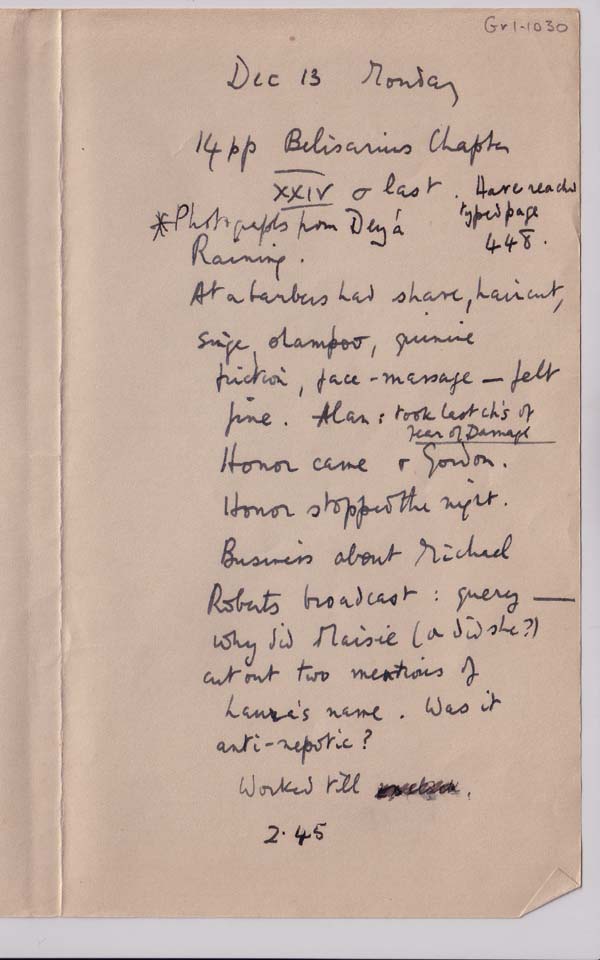 Gr1-1030
Dec 13 Monday
14 pp Belisarius Chapter
XXIV & last. Have reached
typed page
448.
*Photographs from Deyá
Raining.
At a barbers had shave, haircut,
singe, shampoo, quinine
friction, face-massage — felt
fine. Alan: took last ch's of
Fear of Damage
Honor came & Gordon.
Honor stopped the night.
Business about Michael
Roberts broadcast: query —
why did Maisie (or did she?)
cut out two mentions of
Laura's name. Was it
anti-nepotic?
Worked till
2.45